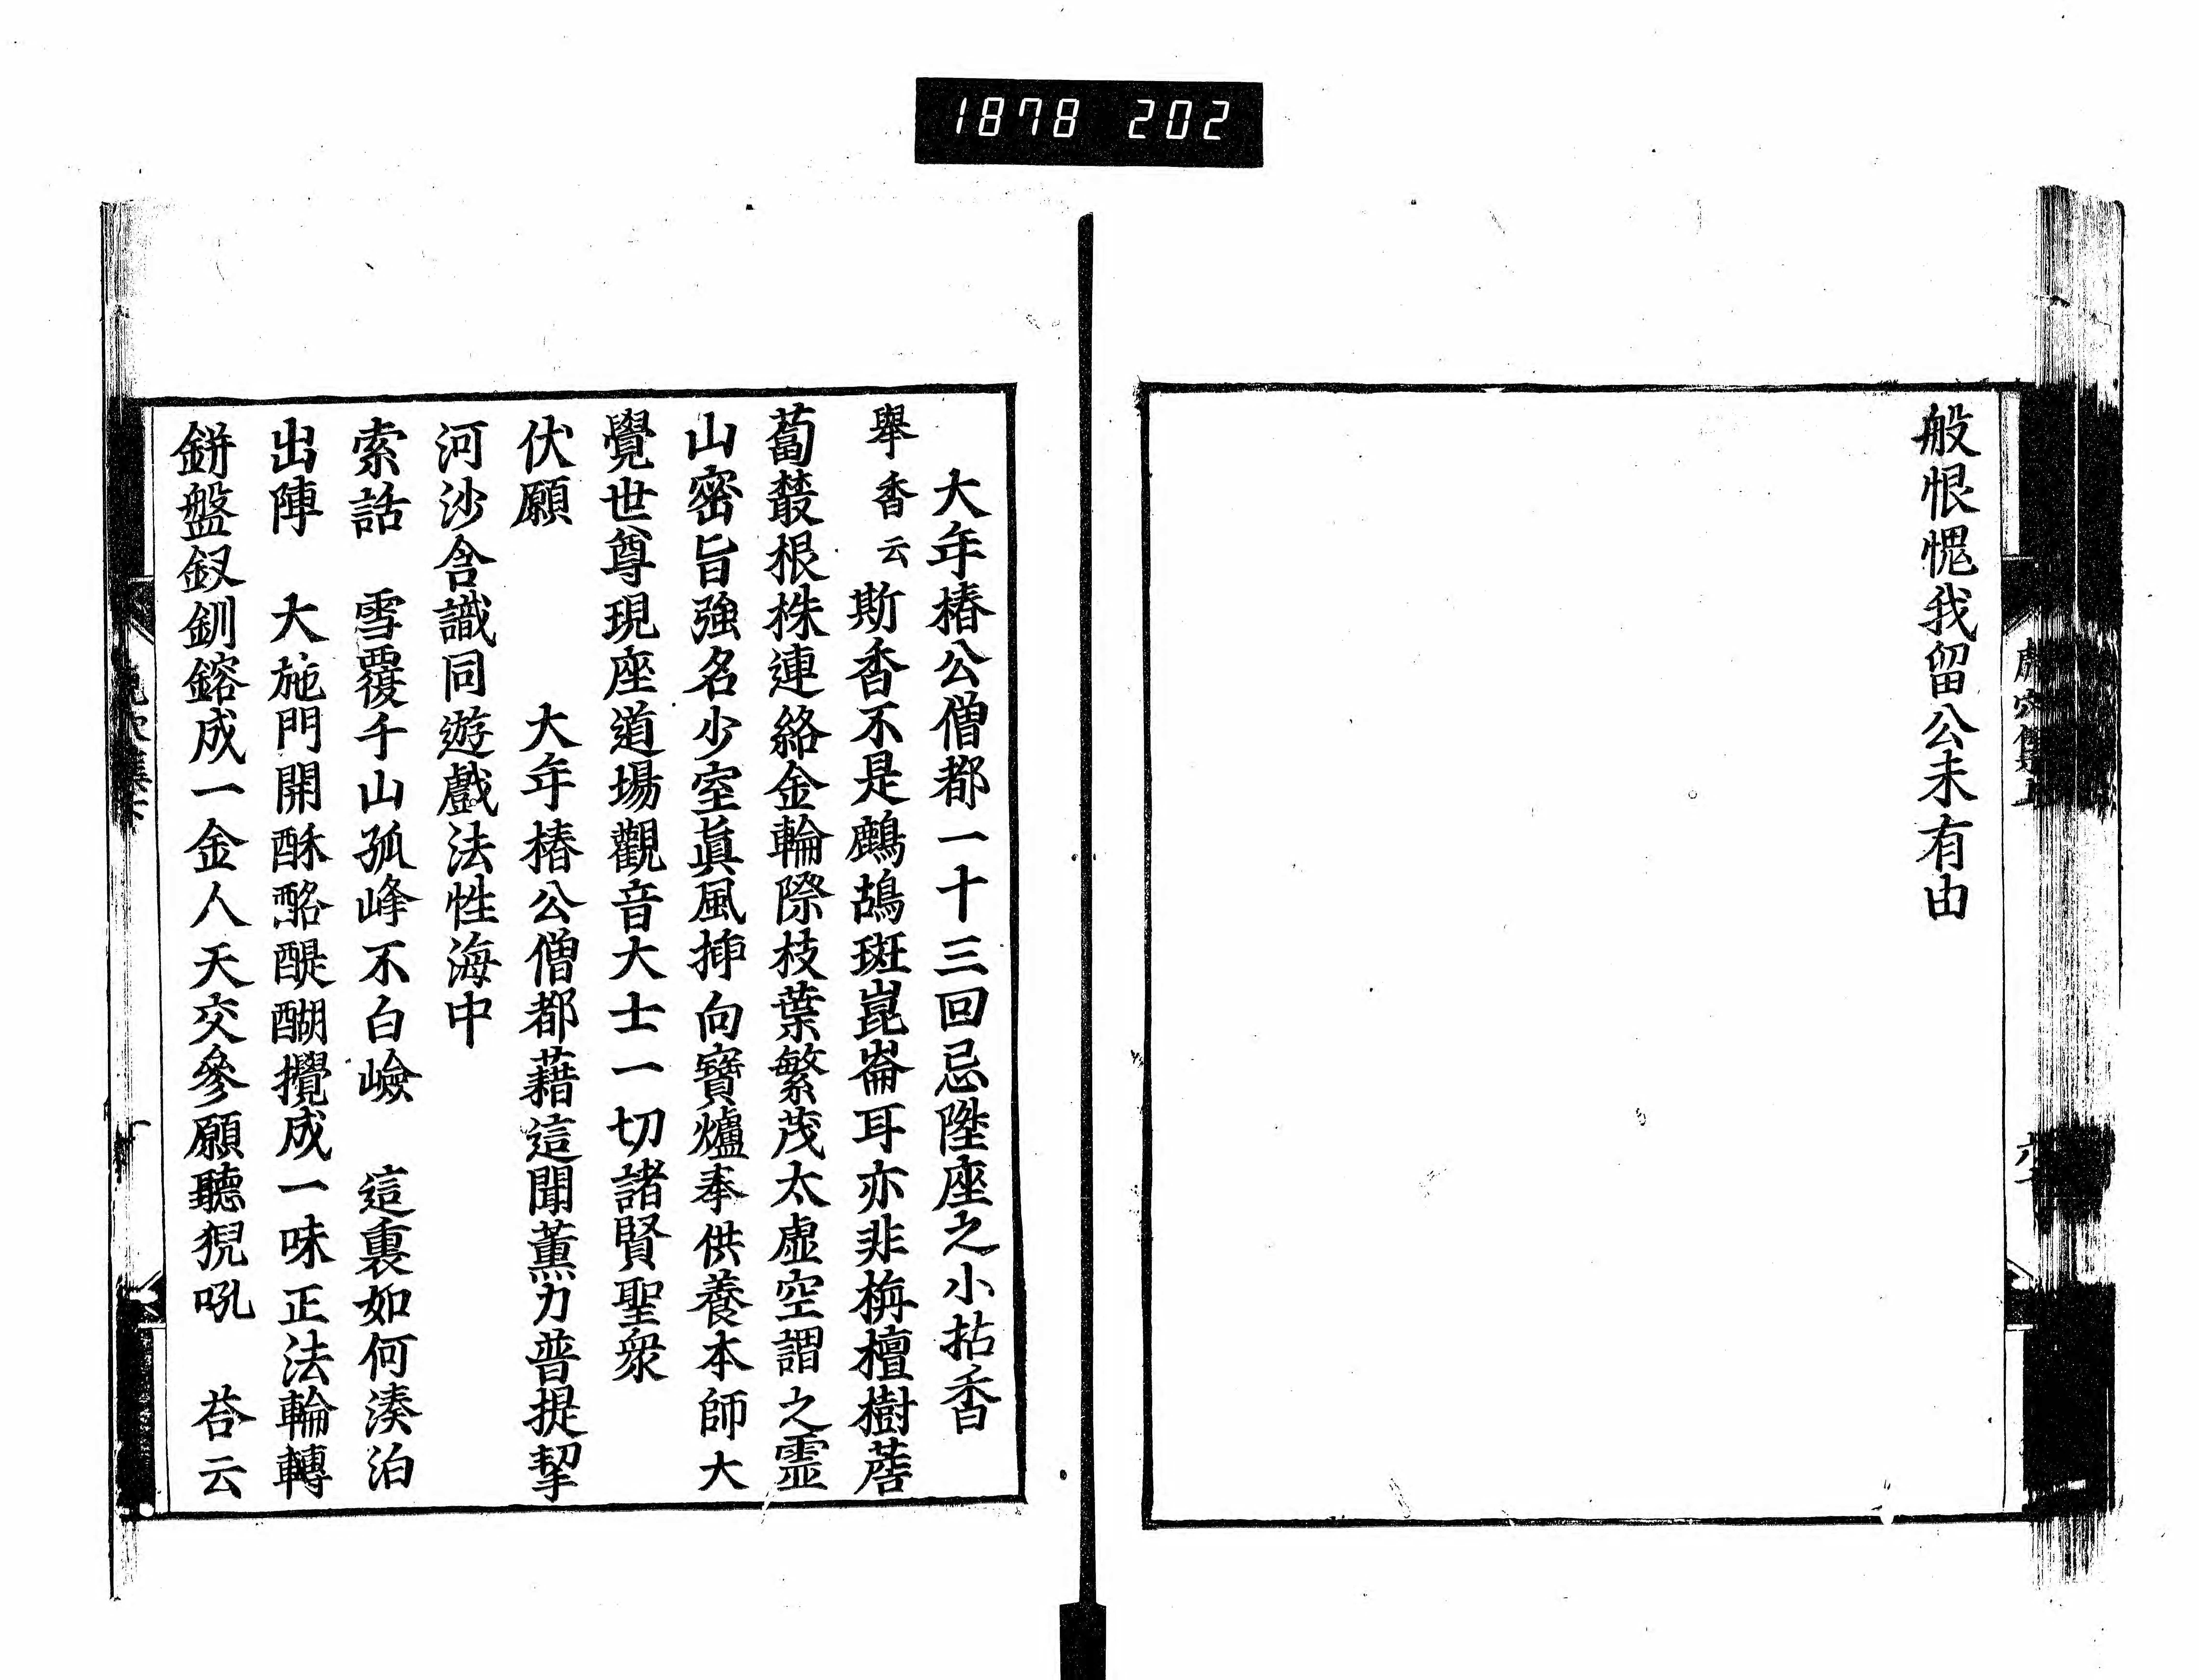 1878 202
般恨愧我留公未有由
大年椿公僧都一十三回忌陞座之小拈香
舉香云斯香不是鷓鴣斑崑崙耳亦非栴檀樹薝
蔔蕟根株連絡金輪際枝葉繁茂太虛空謂之靈
山密旨強名少室眞風挿向寶爐奉供養本師大
覺世尊現座道場觀音大士一切諸賢聖衆
伏願 大年椿公僧都藉這聞薰力普提挈
河沙含識同遊戲法性海中
索話 雪覆千山孤峰不白嶮 這裏如何湊泊
出陣 大施門開酥酪醍醐攪成一味正法輪轉
鉼盤釵釧鎔成一金人天交參願聽猊吼 荅云